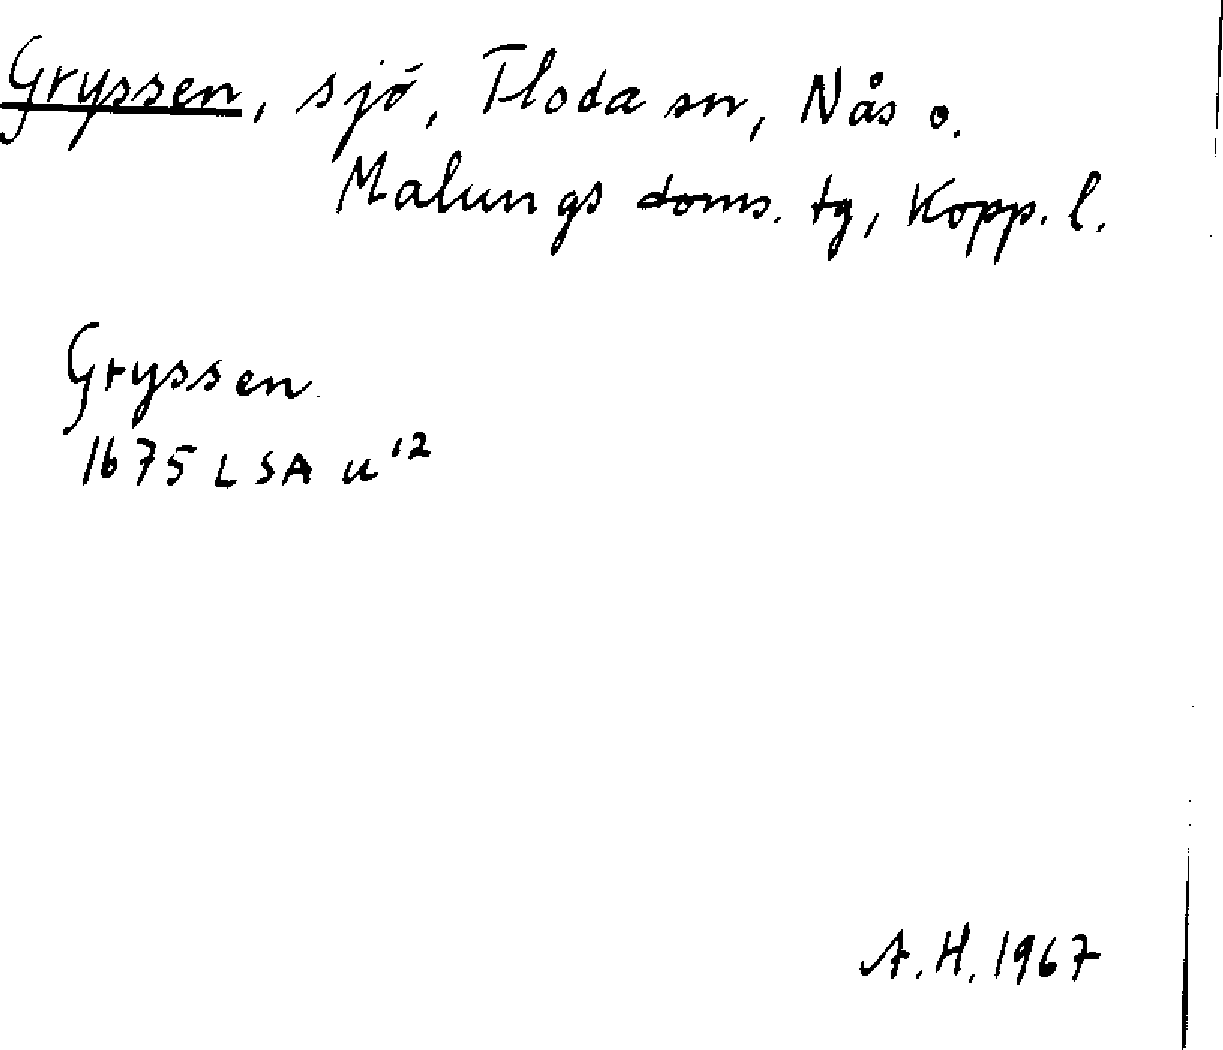 Gryssen, sjö, Floda sn, Nås o.
Malungs doms. tg, Kopp. l.
Gryssen
1675 LSA u¹²
A. H. 1967